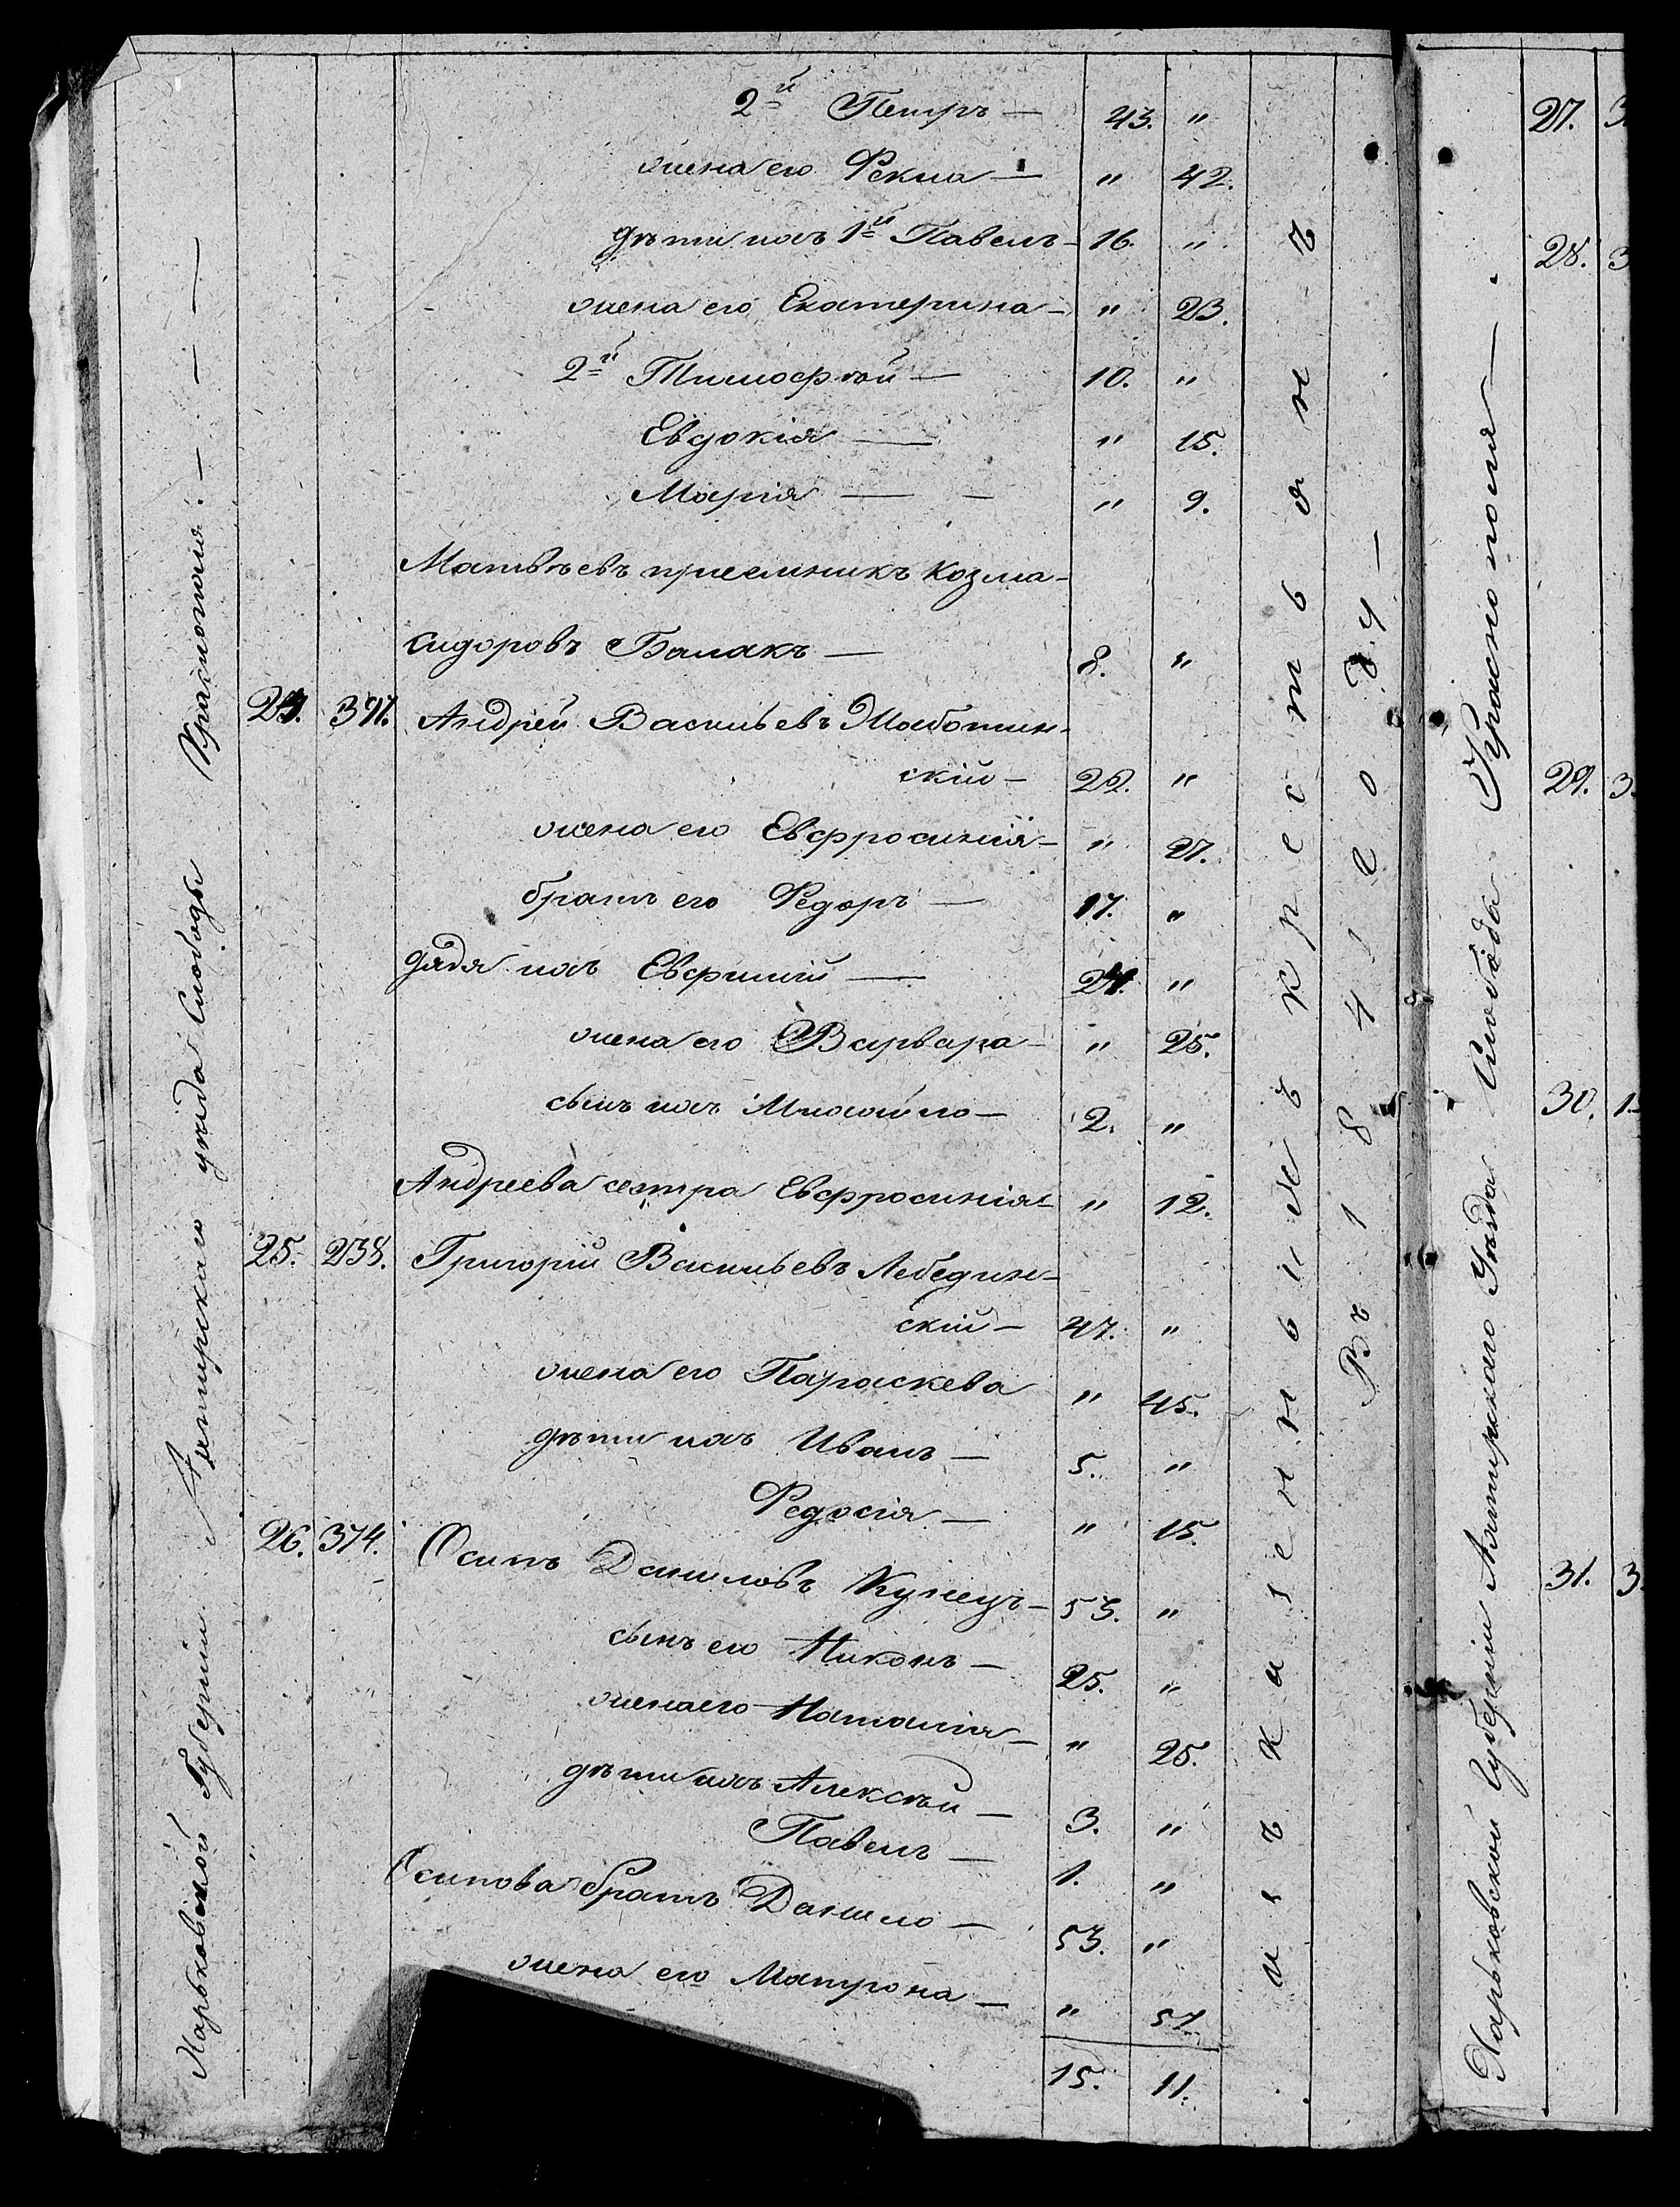 Харьковской Губерніи Ахтырскаго уѣзда Слободы Краснополя.
2й Петръ — 43. "
жена его Фекла — " 42.
дѣти ихъ 1й Павелъ — 16. "
жена его Екатерина — " 23.
2й Тимофѣй — 10. "
Евдокія — " 15.
Марія — " 9.
Матвѣевъ приемникъ Козма
Сидоровъ Балакъ — 8. "
24. 371. Андрей Васильевъ Жаботин-
скій — 22. "
жена его Евфросинія — " 27.
братъ его Федоръ — 17. "
дядя ихъ Евфимій — 24. "
жена его Варвара — " 25.
сынъ ихъ Михайло — 2. "
Андреева сестра Евфросинія — " 12.
25. 238. Григорій Васильевъ Лебедин-
скій — 47. "
жена его Параскева " 45.
дѣти ихъ Иванъ — 5. "
Федосія — " 15.
26. 374. Осипъ Даниловъ Кунецъ — 53. "
сынъ его Никонъ — 25. "
жена его Наталія — " 25.
дѣти ихъ Алексѣй — 3. "
Павелъ — 1. "
Осипова братъ Данило — 53. "
жена его Матрона — " 51.
15. 11.
Въ 1841 году
Харьковской Губерніи Ахтырскаго Уѣзда Слобода Краснополя — .
27. 3
28. 3
29. 3
30. 1
31. 3